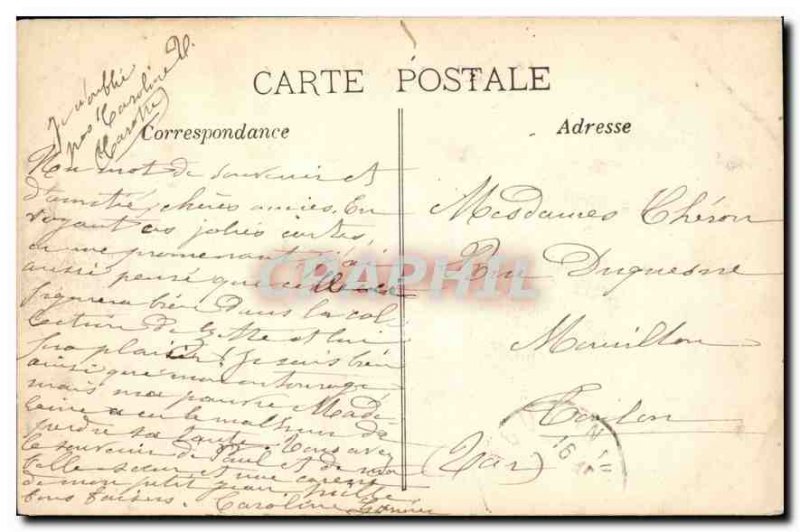 Je n'oublie
pas Caroline V.
CARTE POSTALE
Correspondance
Adresse
Un mot de souvenir et
d'amitié, chères amies. En
voyant ces jolies cartes,
en me promenant j'ai
aussi pensé que celle-ci
figurera bien dans la col
lection de et lui
fra plaisir! Je suis bien
ainsi que mon entourage
mais ma pauvre Made
leine a eu le malheur de
perdre sa tante. Vous avez
le souvenir de Paul et de ma
belle-sœur et une caresse
de mon petit
bons baisers. Caroline
Mesdames Chéron
Rue Duquesne
Mourillon
Toulon
(Var)
CPAPHIL